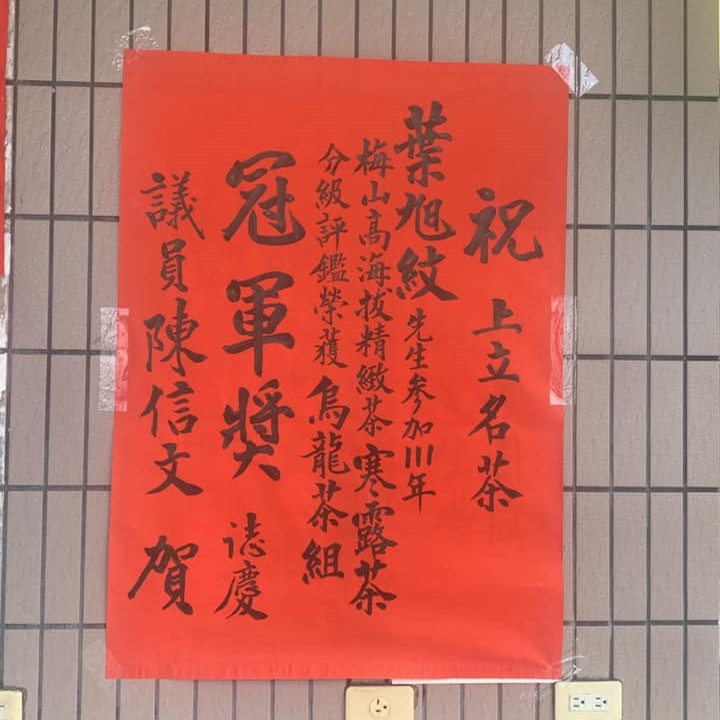 祝 上立名茶
葉旭紋先生參加111年
梅山高海拔精緻茶寒露茶
分級評鑑榮獲烏龍茶組
冠軍獎 誌慶
議員陳信文 賀